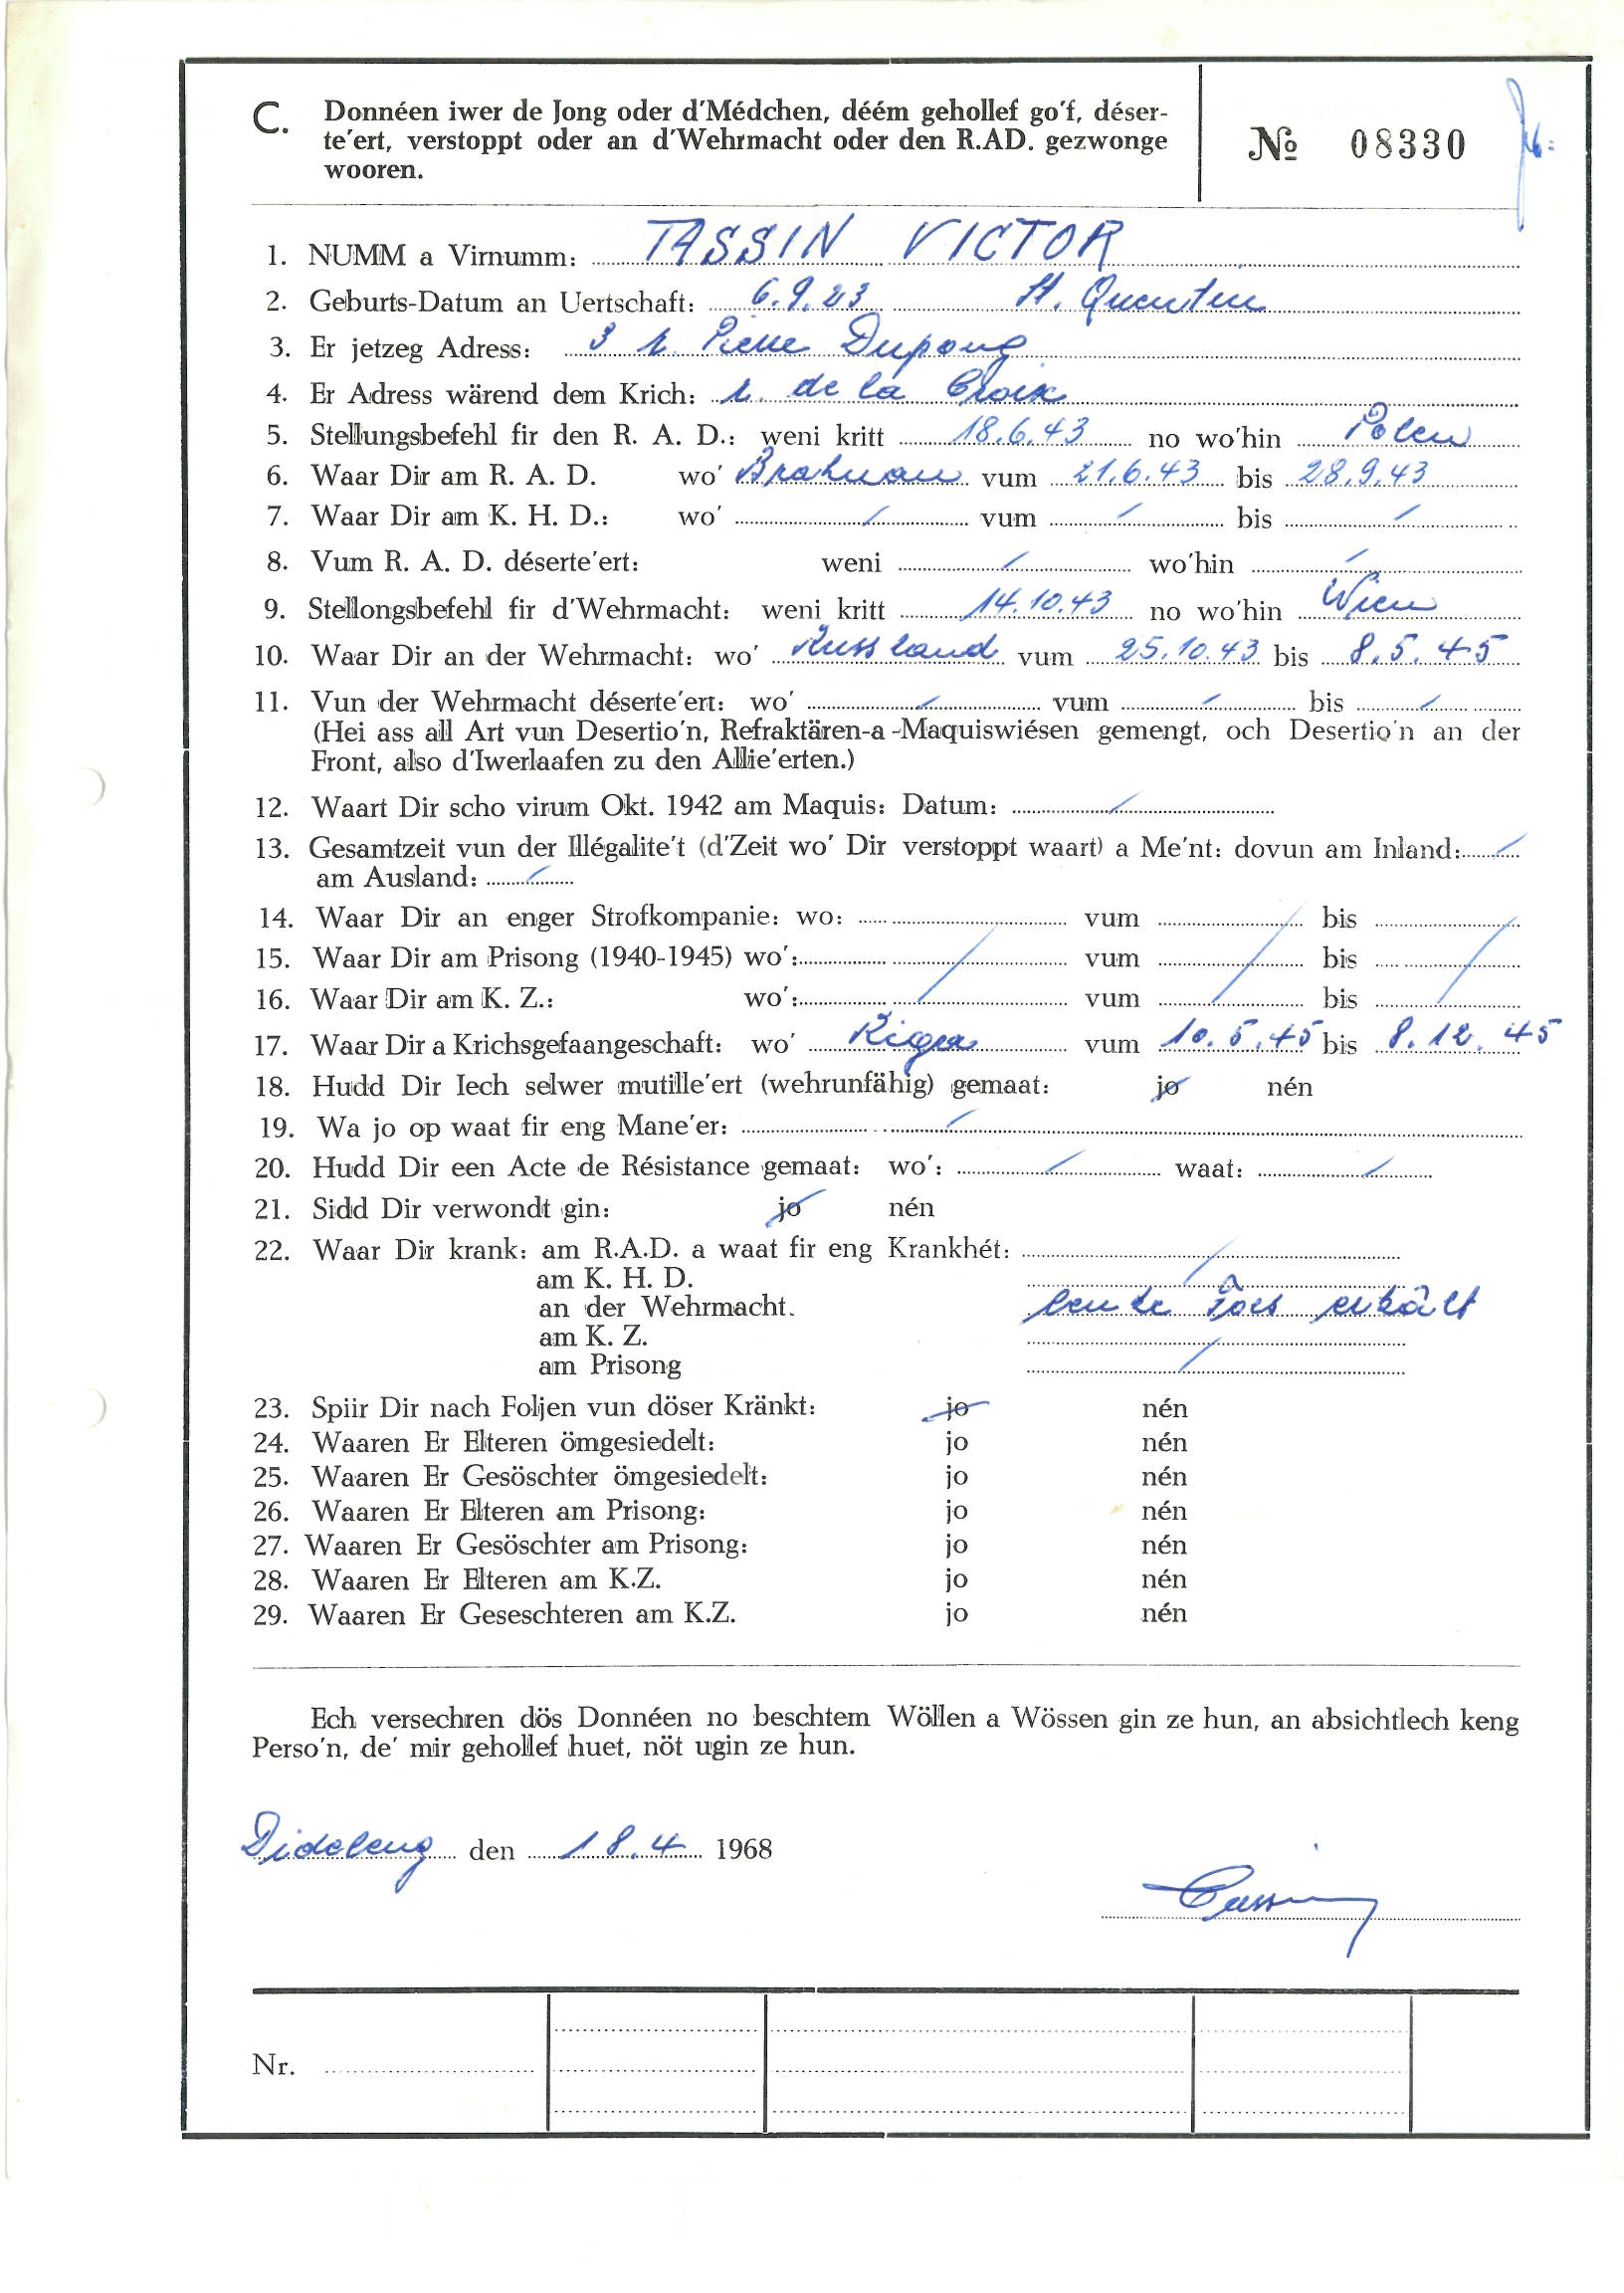 C. Donnéen iwer de Jong oder d'Médchen, déém gehollef go'f, déser-
te'ert, verstoppt oder an d'Wehrmacht oder den R.AD. gezwonge
wooren.
№ 08330
1. NUMM a Virnumm: TASSIN VICTOR
2. Geburts-Datum an Uertschaft: 6.9.23 St. Quentin
3. Er jetzeg Adress: 3 r. Pierre Dupong
4. Er Adress wärend dem Krich: r. de la Croix
5. Stellungsbefehl fir den R. A. D.: weni kritt 18.6.43 no wo'hin Polen
6. Waar Dir am R. A. D. wo' vum 21.6.43 bis 28.9.43
7. Waar Dir am K. H. D.: wo' / vum / bis /
8. Vum R. A. D. déserte'ert: weni / wo'hin /
9. Stellongsbefehl fir d'Wehrmacht: weni kritt 14.10.43 no wo'hin Wien
10. Waar Dir an der Wehrmacht: wo' Russland vum 25.10.43 bis 8.5.45
11. Vun der Wehrmacht déserte'ert: wo' / vum / bis /
(Hei ass all Art vun Desertio'n, Refraktären-a-Maquiswiésen gemengt, och Desertio'n an der
Front, also d'Iwerlaafen zu den Allie'erten.)
12. Waart Dir scho virum Okt. 1942 am Maquis: Datum: /
13. Gesamtzeit vun der Illégalite't (d'Zeit wo' Dir verstoppt waart) a Me'nt: dovun am Inland: /
am Ausland: /
14. Waar Dir an enger Strofkompanie: wo: vum bis
15. Waar Dir am Prisong (1940-1945) wo': / vum / bis /
16. Waar Dir am K. Z.: wo': vum bis
17. Waar Dir a Krichsgefaangeschaft: wo' Riga vum 10.5.45 bis 8.12.45
18. Hudd Dir Iech selwer mutille'ert (wehrunfähig) gemaat: jo nén
19. Wa jo op waat fir eng Mane'er: /
20. Hudd Dir een Acte de Résistance gemaat: wo': / waat: /
21. Sidd Dir verwondt gin: jo nén
22. Waar Dir krank: am R.A.D. a waat fir eng Krankhét: /
am K. H. D.
an der Wehrmacht. erkält
am K. Z.
am Prisong /
23. Spiir Dir nach Foljen vun döser Kränkt: jo nén
24. Waaren Er Elteren ömgesiedelt: jo nén
25. Waaren Er Gesöschter ömgesiedelt: jo nén
26. Waaren Er Elteren am Prisong: jo nén
27. Waaren Er Gesöschter am Prisong: jo nén
28. Waaren Er Elteren am K.Z. jo nén
29. Waaren Er Geseschteren am K.Z. jo nén
Ech versechren dös Donnéen no beschtem Wöllen a Wössen gin ze hun, an absichtlech keng
Perso'n, de' mir gehollef huet, nöt ugin ze hun.
Dideleng den 18.4 1968
Tassin
Nr.